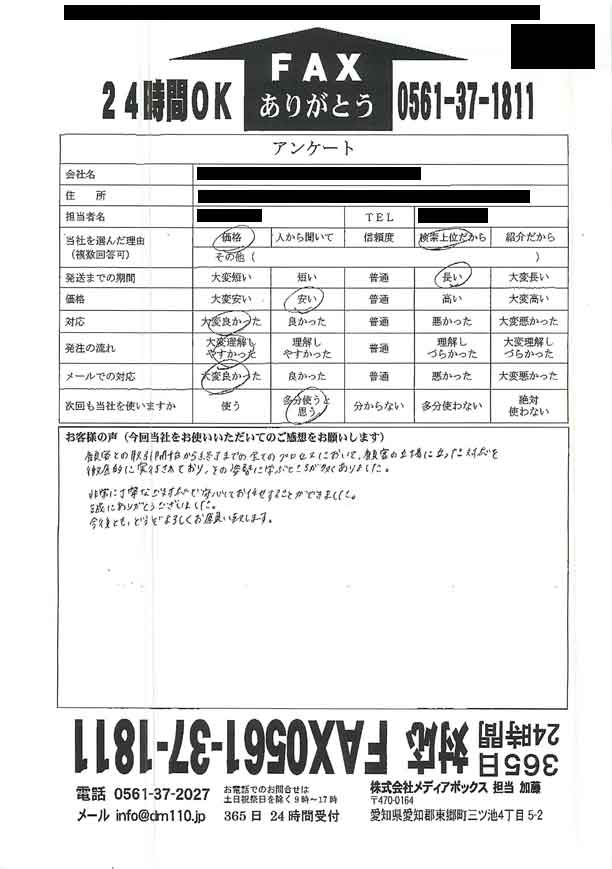 FAX
ありがとう
24時間OK
0561-37-1811
アンケート
会社名
住　所
担当者名 TEL
当社を選んだ理由（複数回答可） 価格 人から聞いて 信頼度 検索上位だから 紹介だから
その他（ ）
発送までの期間 大変短い 短い 普通 長い 大変長い
価格 大変安い 安い 普通 高い 大変高い
対応 大変良かった 良かった 普通 悪かった 大変悪かった
発注の流れ 大変理解しやすかった 理解しやすかった 普通 理解しづらかった 大変理解しづらかった
メールでの対応 大変良かった 良かった 普通 悪かった 大変悪かった
次回も当社を使いますか 使う 多分使うと思う 分からない 多分使わない 絶対使わない
お客様の声（今回当社をお使いいただいてのご感想をお願いします）
顧客との取引開始から完了までの全てのプロセスにおいて、顧客の立場に立った対応を
徹底的に実行されており、その姿勢に学ぶところが多くありました。
非常に丁寧なご対応で安心してお任せすることができました。
誠にありがとうございました。
今後とも、どうぞよろしくお願い致します。
365日
24時間
対応 FAX0561-37-1811
電話 0561-37-2027
お電話でのお問合せは
土日祝祭日を除く9時～17時
株式会社メディアボックス 担当 加藤
〒470-0164
メール info@dm110.jp
365日 24時間受付
愛知県愛知郡東郷町三ツ池4丁目5-2